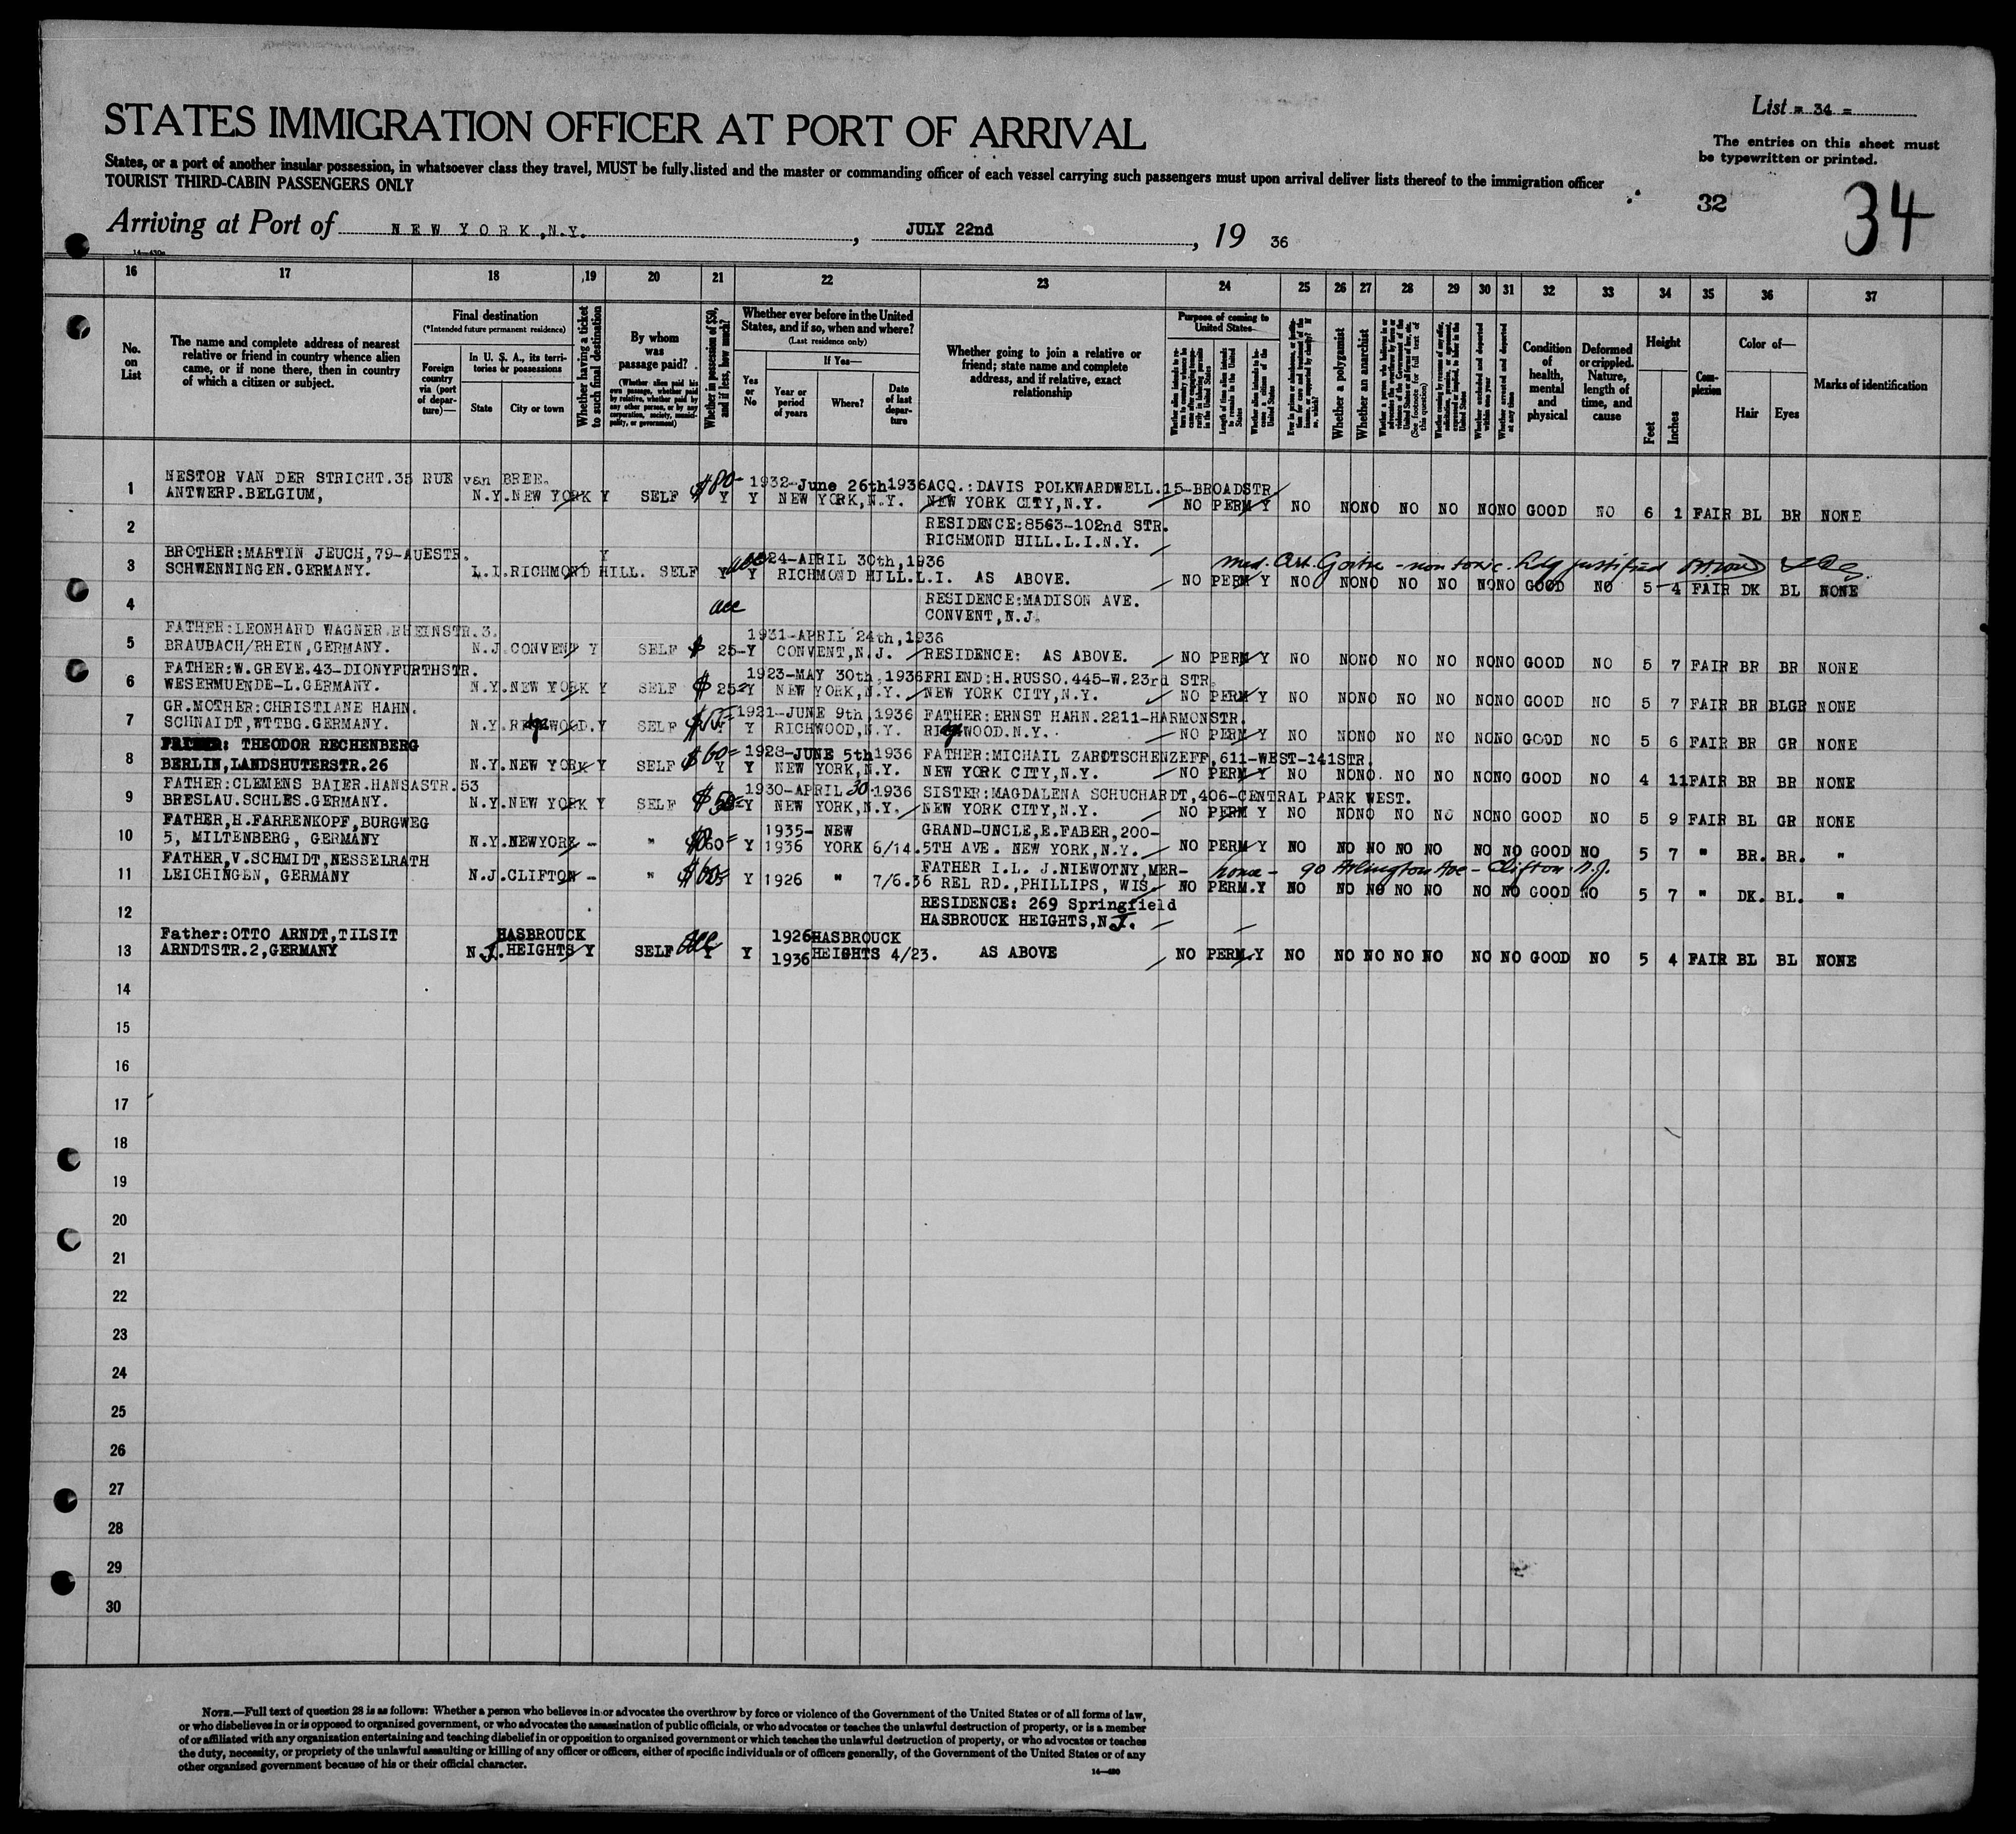 List = 34 =
STATES IMMIGRATION OFFICER AT PORT OF ARRIVAL
The entries on this sheet must
be typewritten or printed.
States, or a port of another insular possession, in whatsoever class they travel, MUST be fully listed and the master or commanding officer of each vessel carrying such passengers must upon arrival deliver lists thereof to the immigration officer
TOURIST THIRD-CABIN PASSENGERS ONLY
32
34
Arriving at Port of NEW YORK, N.Y. , JULY 22nd , 19 36
16 17 18 19 20 21 22 23 24 25 26 27 28 29 30 31 32 33 34 35 36 37
No. on List
The name and complete address of nearest relative or friend in country whence alien came, or if none there, then in country of which a citizen or subject.
Final destination
(*Intended future permanent residence)
Foreign country via (port of departure)—
In U. S. A., its territories or possessions
State
City or town
Whether having a ticket to such final destination
By whom was passage paid?
(Whether alien paid his own passage, whether paid by relative, whether paid by any other person, or by any corporation, society, municipality, or government)
Whether in possession of $50, and if less, how much?
Whether ever before in the United States, and if so, when and where?
(Last residence only)
Yes or No
If Yes—
Year or period of years
Where?
Date of last departure
Whether going to join a relative or friend; state name and complete address, and if relative, exact relationship
Purpose of coming to United States
Whether a polygamist
Whether an anarchist
Condition of health, mental and physical
Deformed or crippled. Nature, length of time, and cause
Height
Feet
Inches
Complexion
Color of—
Hair
Eyes
Marks of identification
NESTOR VAN DER STRICHT.35 RUE van BREE. $80- 1932-June 26th1936 ACQ.:DAVIS POLKWARDWELL.15-BROADSTR
1 ANTWERP.BELGIUM, N.Y. NEW YORK Y SELF Y Y NEW YORK,N.Y. NEW YORK CITY,N.Y. NO PERM Y NO NO NO NO NO NO NO GOOD NO 6 1 FAIR BL BR NONE
2 RESIDENCE:8563-102nd STR.
RICHMOND HILL.L.I.N.Y.
BROTHER:MARTIN JEUCH,79-AUESTR. Y 1924-APRIL 30th,1936 med. Cert. Goitre - non toxic. Ldg justified
3 SCHWENNINGEN.GERMANY. L.I. RICHMOND HILL. SELF Y Y RICHMOND HILL.L.I. AS ABOVE. NO PERM Y NO NO NO NO NO NO NO GOOD NO 5-4 FAIR DK BL NONE
4 acc RESIDENCE:MADISON AVE.
CONVENT,N.J.
FATHER:LEONHARD WAGNER.RHEINSTR.3. 1931-APRIL 24th,1936
5 BRAUBACH/RHEIN,GERMANY. N.J. CONVENT Y SELF $ 25-Y CONVENT,N.J. RESIDENCE: AS ABOVE. NO PERM Y NO NO NO NO NO NO NO GOOD NO 5 7 FAIR BR BR NONE
FATHER:W.GREVE.43-DIONYFURTHSTR. 1923-MAY 30th,1936 FRIEND:H.RUSSO.445-W.23rd STR.
6 WESERMUENDE-L.GERMANY. N.Y. NEW YORK Y SELF $ 25 Y NEW YORK,N.Y. NEW YORK CITY,N.Y. NO PERM Y NO NO NO NO NO NO NO GOOD NO 5 7 FAIR BR BLGR NONE
GR.MOTHER:CHRISTIANE HAHN. 1921-JUNE 9th,1936 FATHER:ERNST HAHN.2211-HARMONSTR.
7 SCHNAIDT,WTTBG.GERMANY. N.Y. RIDGEWOOD.Y SELF Y Y RICHWOOD,N.Y. RIDGEWOOD.N.Y. NO PERM Y NO NO NO NO NO NO NO GOOD NO 5 6 FAIR BR GR NONE
THEODOR RECHENBERG $60= 1928-JUNE 5th1936 FATHER:MICHAIL ZARDTSCHENZEFF,611-WEST-141STR.
8 BERLIN,LANDSHUTERSTR.26 N.Y. NEW YORK Y SELF Y Y NEW YORK,N.Y. NEW YORK CITY,N.Y. NO PERM Y NO NO NO NO NO NO NO GOOD NO 4 11 FAIR BR BR NONE
FATHER:CLEMENS BAIER.HANSASTR.53 1930-APRIL 30.1936 SISTER:MAGDALENA SCHUCHARDT,406-CENTRAL PARK WEST.
9 BRESLAU.SCHLES.GERMANY. N.Y. NEW YORK Y SELF $ 50 Y NEW YORK,N.Y. NEW YORK CITY,N.Y. NO PERM Y NO NO NO NO NO NO NO GOOD NO 5 9 FAIR BL GR NONE
FATHER,H.FARRENKOPF,BURGWEG 1935- NEW GRAND-UNCLE,E.FABER,200-
10 5, MILTENBERG, GERMANY N.Y. NEWYORK - " $60= Y 1936 YORK 6/14. 5TH AVE. NEW YORK,N.Y. NO PERM Y NO NO NO NO NO NO NO GOOD NO 5 7 " BR. BR. "
FATHER,V.SCHMIDT,NESSELRATH FATHER I.L. J.NIEWOTNY,MER- home - 90 Arlington Ave - Clifton N.J.
11 LEICHINGEN, GERMANY N.J. CLIFTON - " $60 Y 1926 " 7/6.36 REL RD.,PHILLIPS, WIS. NO PERM.Y NO NO NO NO NO NO NO GOOD NO 5 7 " DK. BL. "
12 RESIDENCE: 269 Springfield
HASBROUCK HEIGHTS,N.J.
Father:OTTO ARNDT,TILSIT HASBROUCK acc 1926- HASBROUCK
13 ARNDTSTR.2,GERMANY N.J. HEIGHTS Y SELF Y Y 1936 HEIGHTS 4/23. AS ABOVE NO PERM.Y NO NO NO NO NO NO NO GOOD NO 5 4 FAIR BL BL NONE
14
15
16
17
18
19
20
21
22
23
24
25
26
27
28
29
30
NOTE.—Full text of question 28 is as follows: Whether a person who believes in or advocates the overthrow by force or violence of the Government of the United States or of all forms of law,
or who disbelieves in or is opposed to organized government, or who advocates the assassination of public officials, or who advocates or teaches the unlawful destruction of property, or is a member
of or affiliated with any organization entertaining and teaching disbelief in or opposition to organized government or which teaches the unlawful destruction of property, or who advocates or teaches
the duty, necessity, or propriety of the unlawful assaulting or killing of any officer or officers, either of specific individuals or of officers generally, of the Government of the United States or of any
other organized government because of his or their official character.
14—430